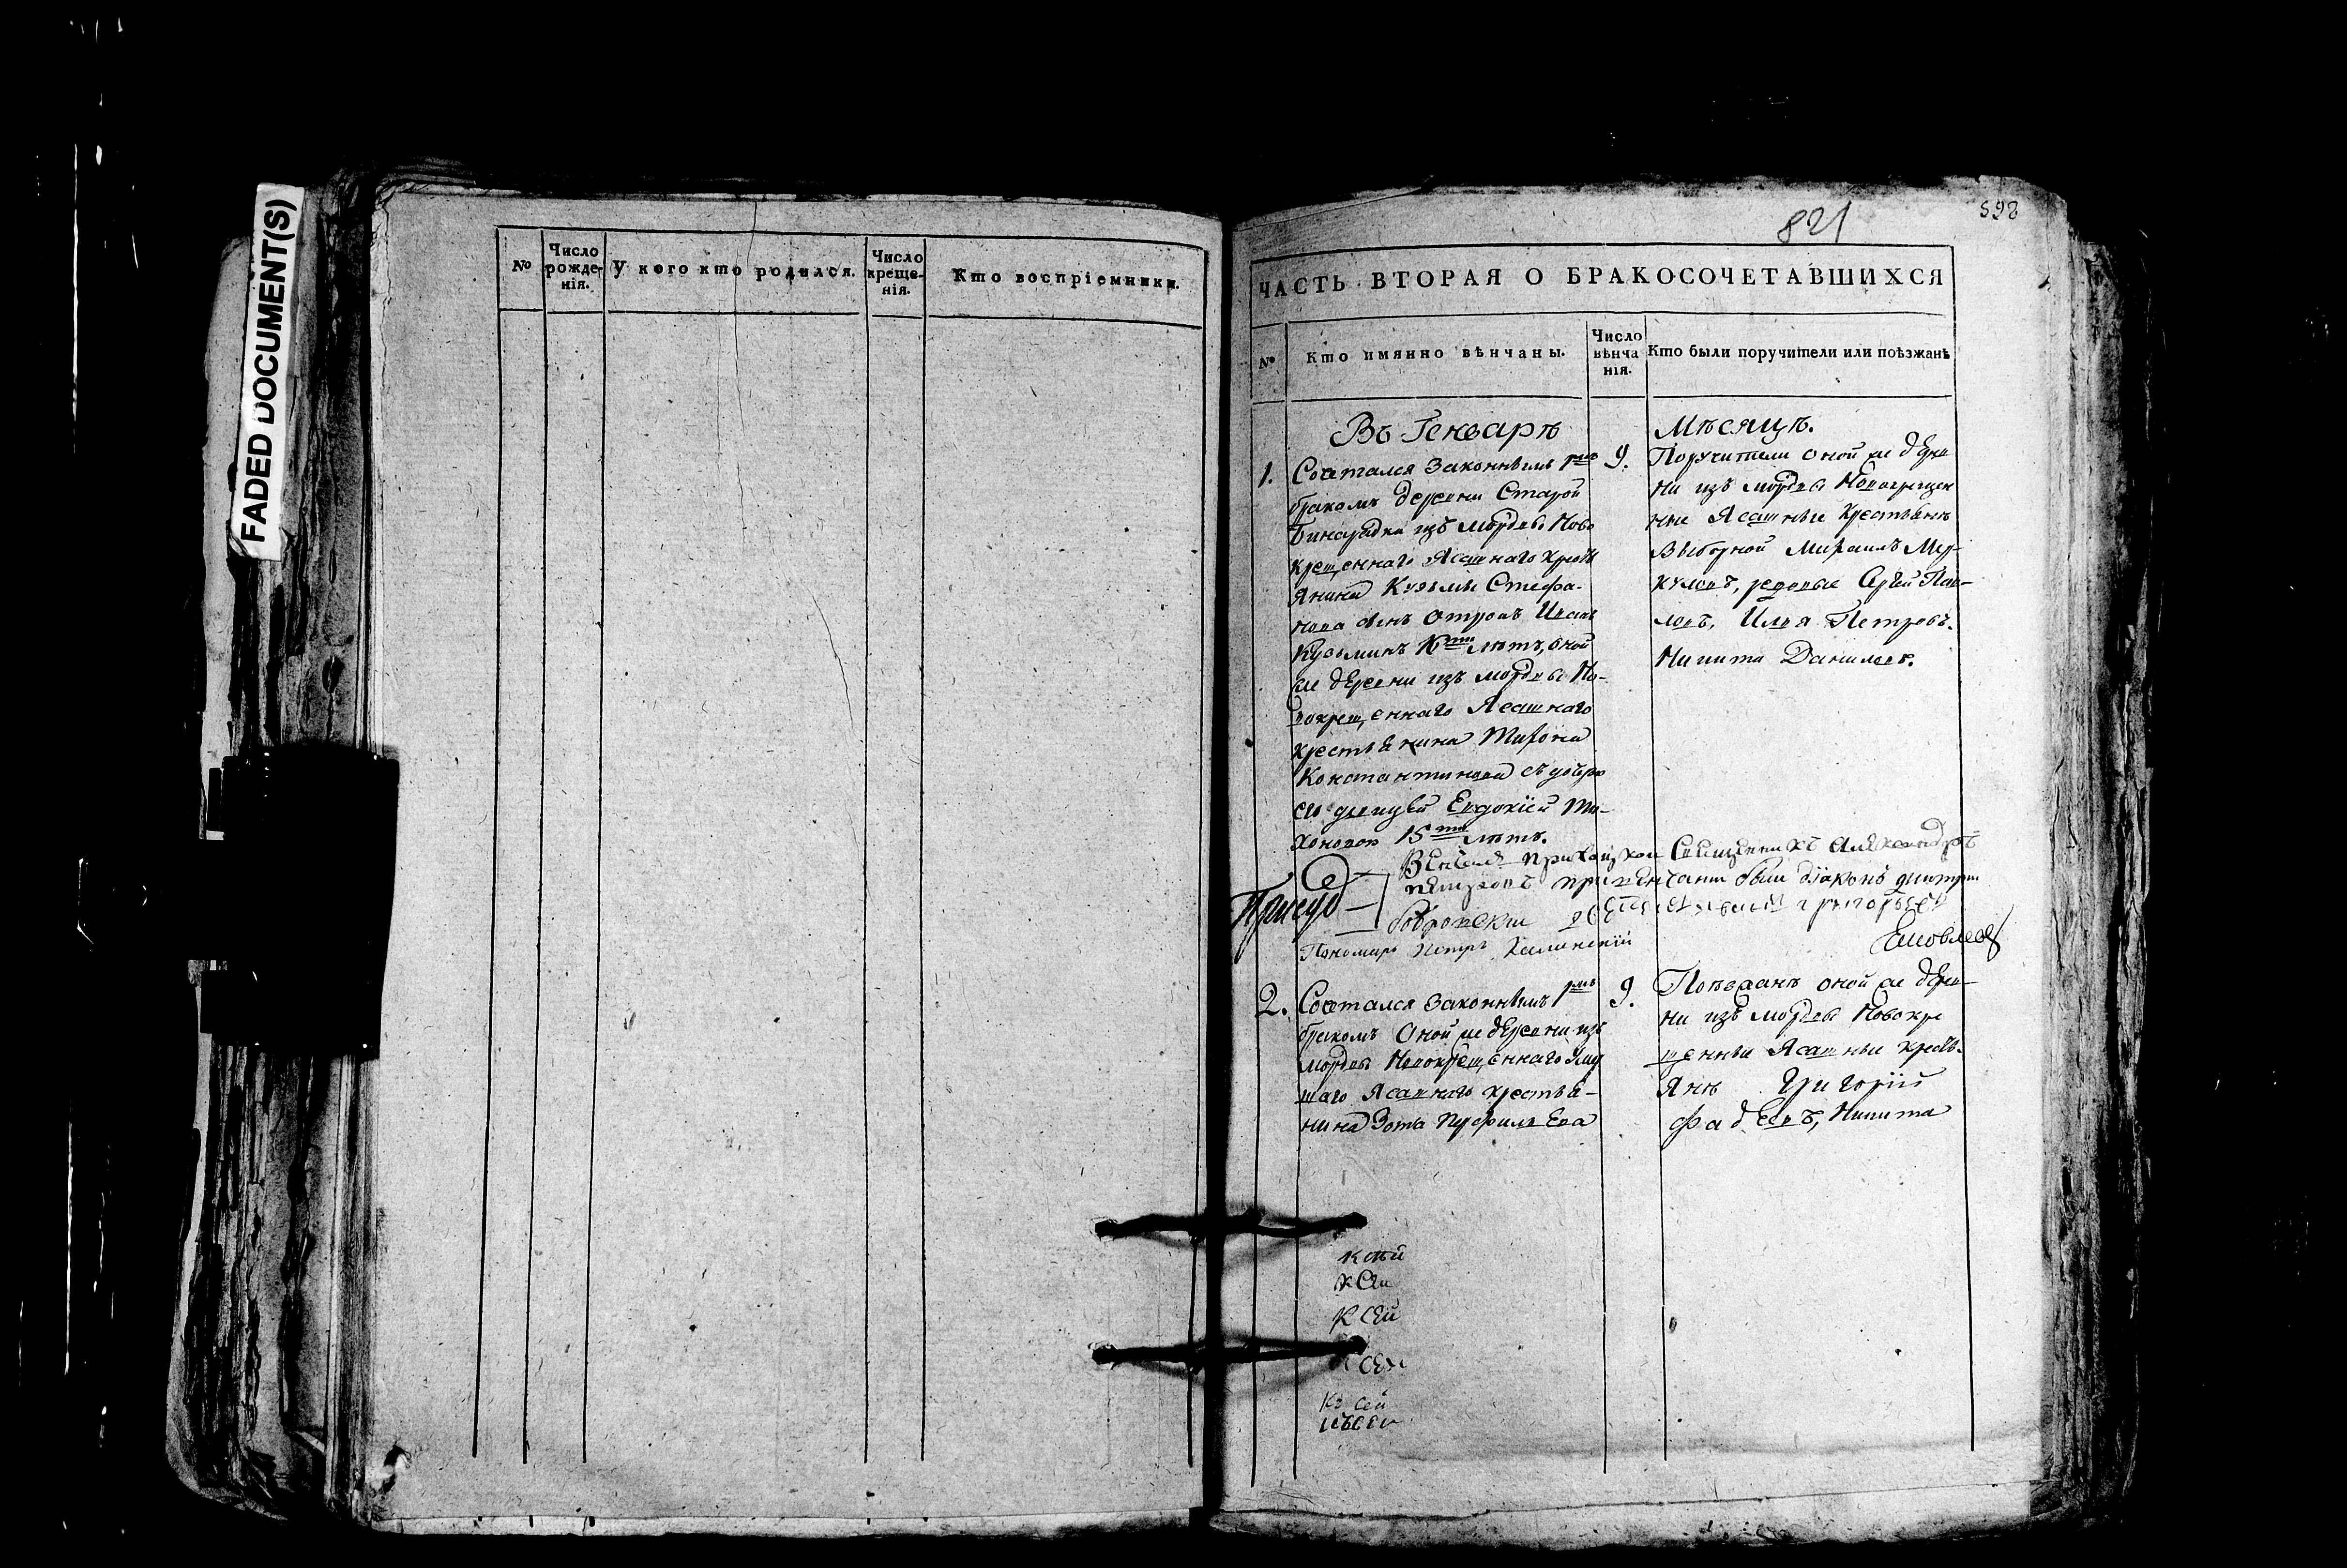 FADED DOCUMENT(S)
№
Число рожде- нія.
У кого кто родился.
Число креще- нія.
Кто воспріемники.
821
598
ЧАСТЬ ВТОРАЯ О БРАКОСОЧЕТАВШИХСЯ
№
Кто имянно вѣнчаны.
Число вѣнча нія.
Кто были поручители или поѣзжанѣ
Въ Генварѣ
Мѣсяцѣ.
1.
Сочетался законнымъ 1мъ
бракомъ деревни Старой
Бинарадки изъ мордвы Ново
крещеннаго Ясашнаго крестъ
янина Кузьмы Стефа-
нова сынъ отрокъ
Кузьминъ 16ти лѣтъ, оной
же деревни изъ мордвы Но-
вокрещеннаго Ясашнаго
крестьянина Тихона
Константинова съ дочерью
дѣвицей Евдокіей Ти-
хоновой 15ти лѣтъ.
9.
Поручители оной же дерев
ни изъ мордвы Новокрещен
ные Ясашные крестьянѣ
Выборной Михаилъ Мер-
куловъ, рядовые Сергей Пав-
ловъ, Илья Петровъ.
Никита Даниловъ.
Венчалъ приходской Священникъ Александръ
Петровъ при венчани были діаконъ дмитри
Бобровски
Пономарь Петръ
2.
Сочетался законнымъ 1мъ
бракомъ оной же деревни изъ
мордвы Новокрещеннаго
Ясашнаго крестья-
нина Зота Перфильева
9.
Поѣзжанѣ оной же дерев-
ни изъ мордвы Новокре
щенные Ясашные кресть-
янѣ Григорій
Фадеевъ, Никита
к сей
к сей
к сей
к сей
Къ сей
къ сей